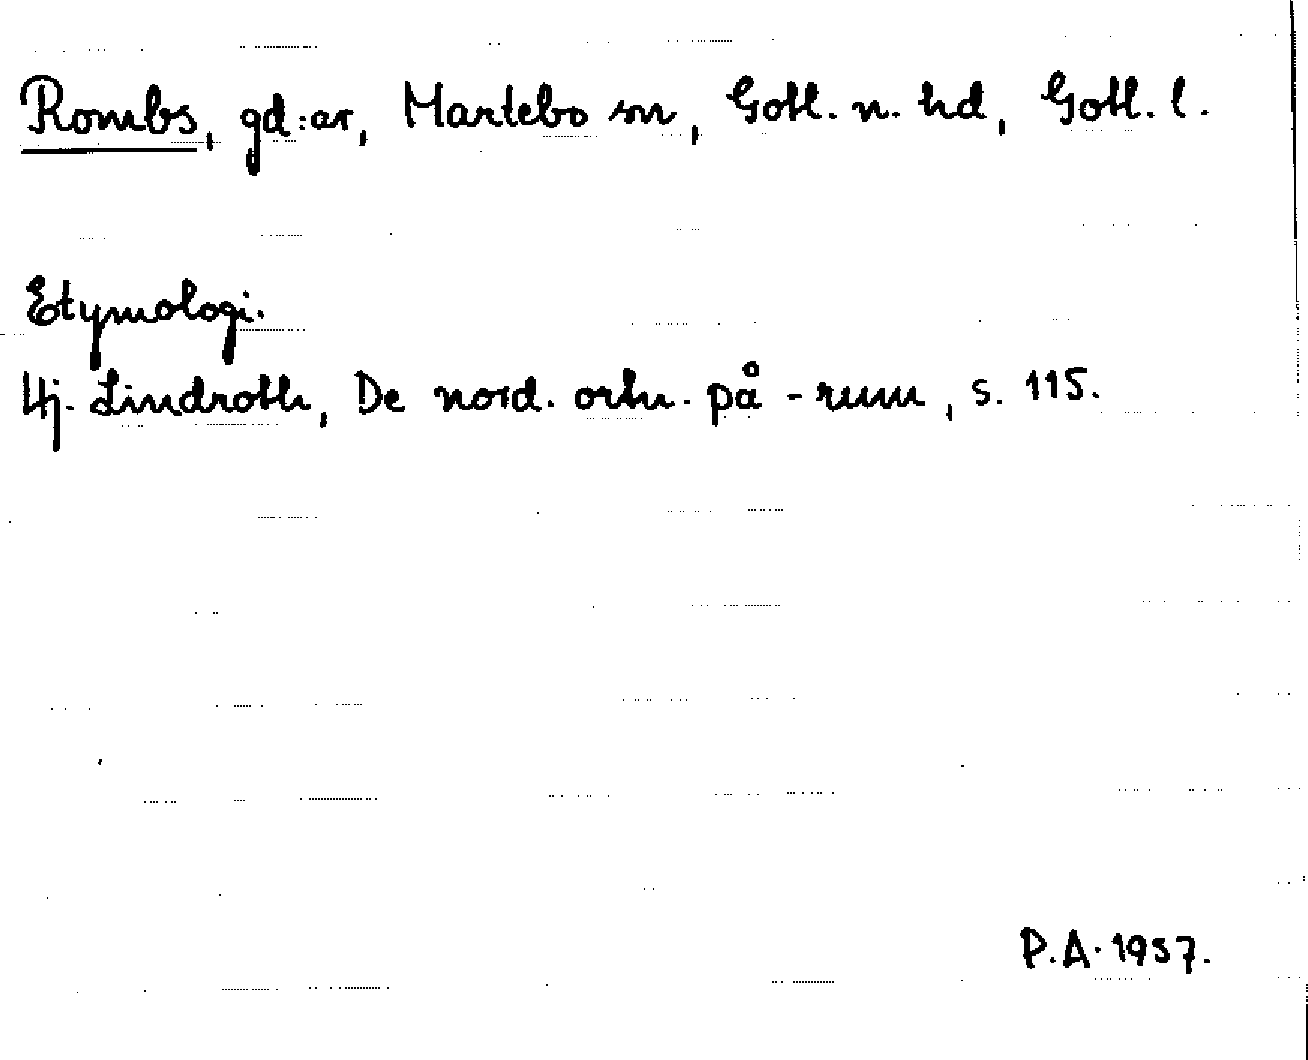 Rombs, gd:ar, Martebo sn, Gotl. n. hd, Gotl. l.
Etymologi.
Hj. Lindroth, De nord. ortn. på -rum, s. 115.
P.A. 1937.